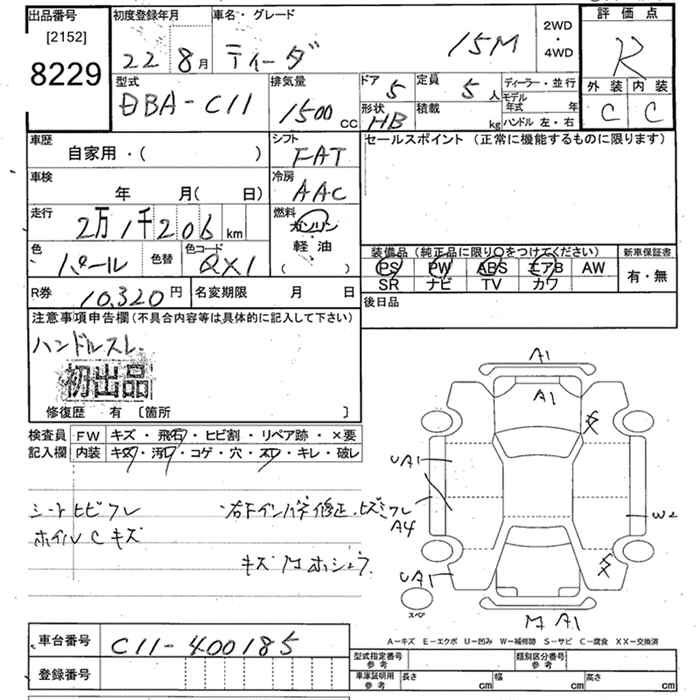 出品番号 初度登録年月 車名・グレード
[2152] 2WD 評価点
8229 22 8月 ティーダ 15M ・ R
4WD
型式 排気量 ドア 定員 ディーラー・並行 外装 内装
DBA-C11 1500 CC 5 5 人 モデル年式 年 C C
形状 積載
HB kg ハンドル 左・右
車歴 シフト セールスポイント (正常に機能するものに限ります)
自家用・( ) FAT
車検 冷房
年 月( 日) AAC
走行 燃料
2万1千206 km ガソリン
色 色替 色コード 軽油 装備品(純正品に限り○をつけてください) 新車保証書
パール QX1 ( ) PS PW ABS エアB AW 有・無
SR ナビ TV カワ
R券 10,320円 名変期限 月 日 後日品
注意事項申告欄(不具合内容等は具体的に記入して下さい)
ハンドルスレ
初出品
修復歴 有 〔箇所 〕
検査員 FW キズ・飛石・ヒビ割・リペア跡・×要
記入欄 内装 キズ・汚れ・コゲ・穴・スレ・キレ・破レ
シートヒビワレ
ホイルCキズ
A1
A1
UA1
A4
W2
UA1
スペア
A1
A-キズ E-エクボ U-凹み W-補修跡 S-サビ C-腐食 XX-交換済
車台番号 C11-400185
型式指定番号 参考 類別区分番号 参考
登録番号 車庫証明用 参考 長さ cm 幅 cm 高さ cm